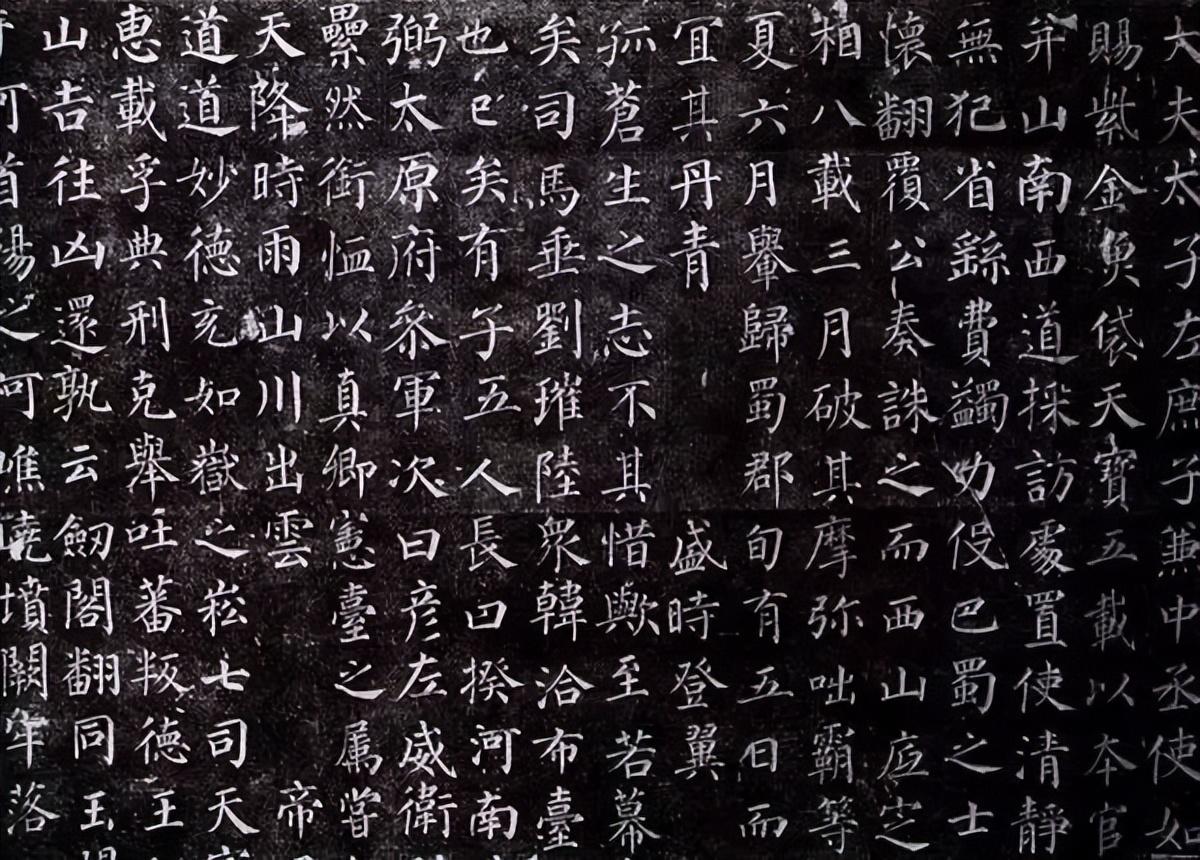 大夫太子左庶子兼中丞使如
賜紫金魚袋天寶五載以本官
弁山南西道採訪處置使清靜
無犯省繇費蠲伇巴蜀之士
懷翻覆公奏誅之而西山底定
相八載三月破其摩弥咄霸等
夏六月轝歸蜀郡旬有五日而
宜其丹青 盛時登翼
孤蒼生之志不其惜歟至若幕
矣司馬垂劉璀陸衆韓洽布臺
也已矣有子五人長曰揆河南
弼太原府叅軍次曰彦左威衛
纍然銜恤以真卿憲臺之属嘗
天降時雨山川出雲 帝
道道妙德充如嶽之崧七司天
惠載孚典刑克舉吐蕃叛德王
山吉往凶還孰云劒閣翻同玉
首陽之噍嶢墳闕年落